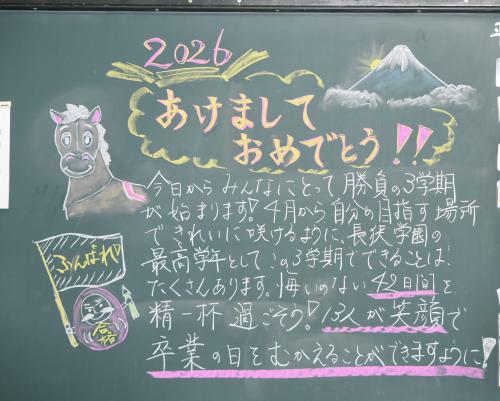 2026
あけまして
おめでとう!!
今日からみんなにとって勝負の3学期
が始まります!4月から自分の目指す場所
できれいに咲けるように、長狭学園の
最高学年としてこの3学期でできることは
たくさんあります。悔いのない42日間を
精一杯過ごそう!13人が笑顔で
卒業の日をむかえることができますように!
ふんばれ!
合格